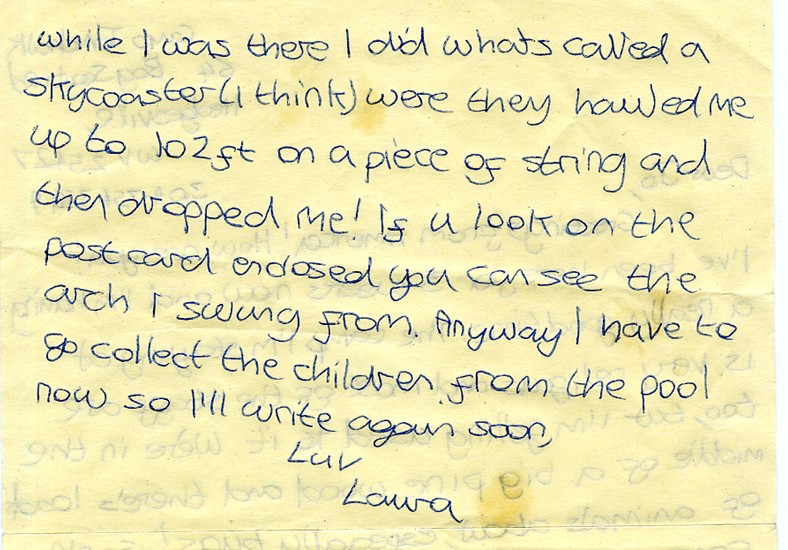 while I was there I did whats called a
skycoaster (I think) were they hauled me
up to 102ft on a piece of string and
then dropped me! If u look on the
postcard enclosed you can see the
arch I swung from. Anyway I have to
go collect the children from the pool
now so I'll write again soon,
Luv
Laura